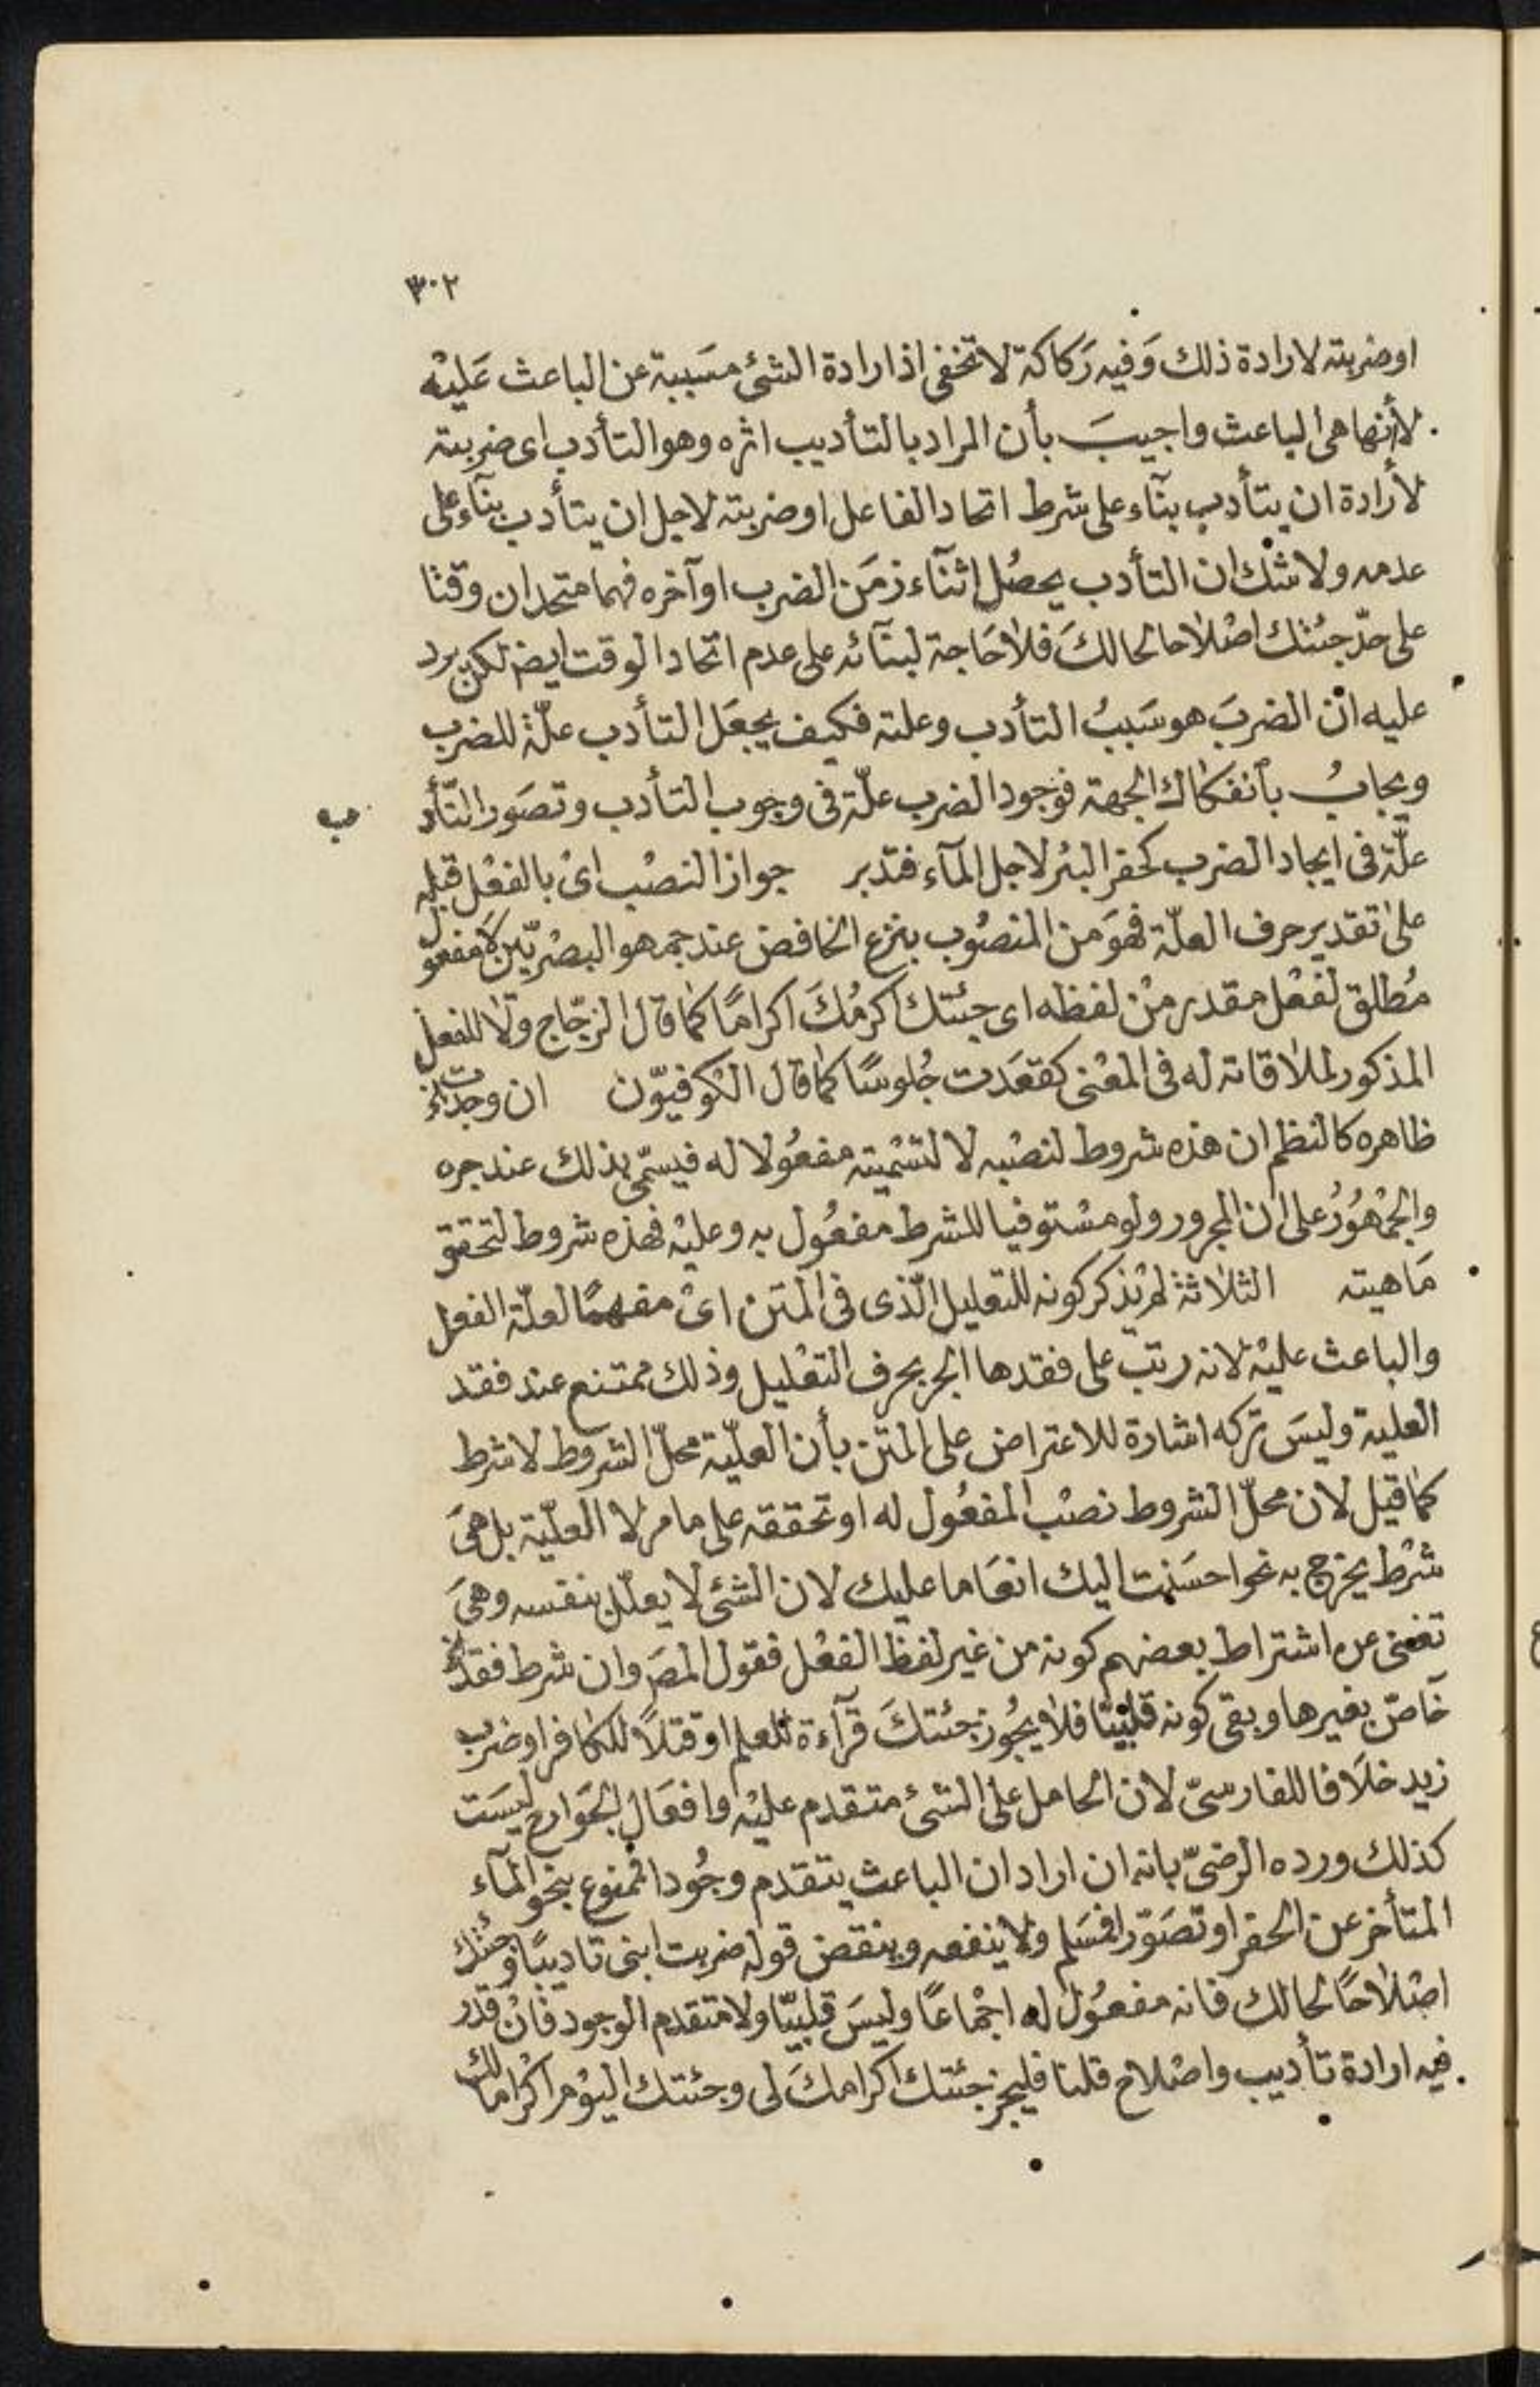 ٣٠٢
اوضربته لارادة ذلك وَفيه رَكاكة لا تخفى اذ ارادة الشئ مسَببة عن الباعث عَليْه
لأنّها هى الباعث واجيبَ بأن المراد بالتأديب اثره وهو التأدب اى ضربته
لأرادة ان يتأدب بنآء على شرط اتحاد الفاعل اوضربته لاجل ان يتأدب بنآء على
عدمه ولا شك ان التأدب يحصُل اثنآء زمَن الضرب او آخره فهما متحدان وقتا
على حدّ جئتك اصْلاحا لحالكَ فلاحَاجة لبنآئه على عدم اتحاد الوقت ايضا لكن يرد
عليه انّ الضربَ هو سَببُ التأدب وعلته فكيف يجعَل التأدب علّة للضرب
ويجابُ بأنفكاك الجهة فوجود الضرب علّة فى وجوب التأدب وتصَور التّأد
ب
علّة فى ايجاد الضرب كحفر البئر لاجل المآء فتدبر جواز النصْب اىْ بالفعْل قبله
على تقدير حرف العلّة فهوَ من المنصُوب بنزع الخافض عند جمهو البصْريّين لاَ مفعول
مُطلق لفعْل مقدر منْ لفظه اى جئتك اكرمُكَ اكرامًا كما قال الزجّاج ولا للفعل
المذكور لملاقاته له فى المعْنى كقعَدت جُلوسًا كما قال الكوفيّون ان وجدت الخ
ظاهره كالنظم ان هذه شروط لنصْبه لا لتسْميته مفعُولا له فيسمّى بذلك عند جره
والجُمْهوُرُ على ان المجرور ولو مسْتوفيا للشرط مفعُول به وعليْه فهذه شروط لتحقق
مَاهيته الثلاثة لم يذكر كونه للتعليل الّذى فى المتن اىْ مفهمًا لعلّة الفعل
والباعث عليْه لانه رتبّ على فقدها الجر بحرف التعْليل وذلك ممتنع عند فقد
العلية وليسَ تركه اشارة للاعتراض على المتن بأن العليّة محلّ الشروط لا شرط
كما قيل لان محلّ الشروط نصْب المفعُول له او تحققه على ما مر لا العليّة بل هىَ
شرْط يخرج به نحو احسَنت اليك انعَاما عليك لان الشئ لا يعلّل بنفسه وهىَ
تغنى عن اشتراط بعضهم كونه من غير لفظ الفعْل فقول المصَ وان شرط فقد الخ
خاصّ بغيرها وبقى كونه قلبيّا فلا يجُوز جئتكَ قرآءة للعلم او قتلاً للكافر او ضرب
زيد خلاَفا للفارسىّ لان الحامل على الشئ متقدم عليْه وافعَال الجَوارح ليسَت
كذلك ورده الرضىّ بانه ان اراد ان الباعث يتقدم وجُودا فممنوع بنحو المآء
المتأخر عن الحفر او تصَوّرا فمسَلم ولا ينفعه وينقض قوله ضربت ابنى تاديبًا وجئتك
اصْلاحًا لحالك فانه مفعُول له اجْماعًا وليسَ قلبيّا ولا متقدم الوجود فانْ قدر
فيه ارادة تأديب واصْلاح قلنا فليجز جئتك اكرامكَ لى وجئتك اليوْم اكْرامالك